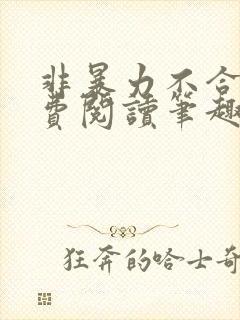 非暴力不合
費閱讀筆趣
狂奔的哈士奇